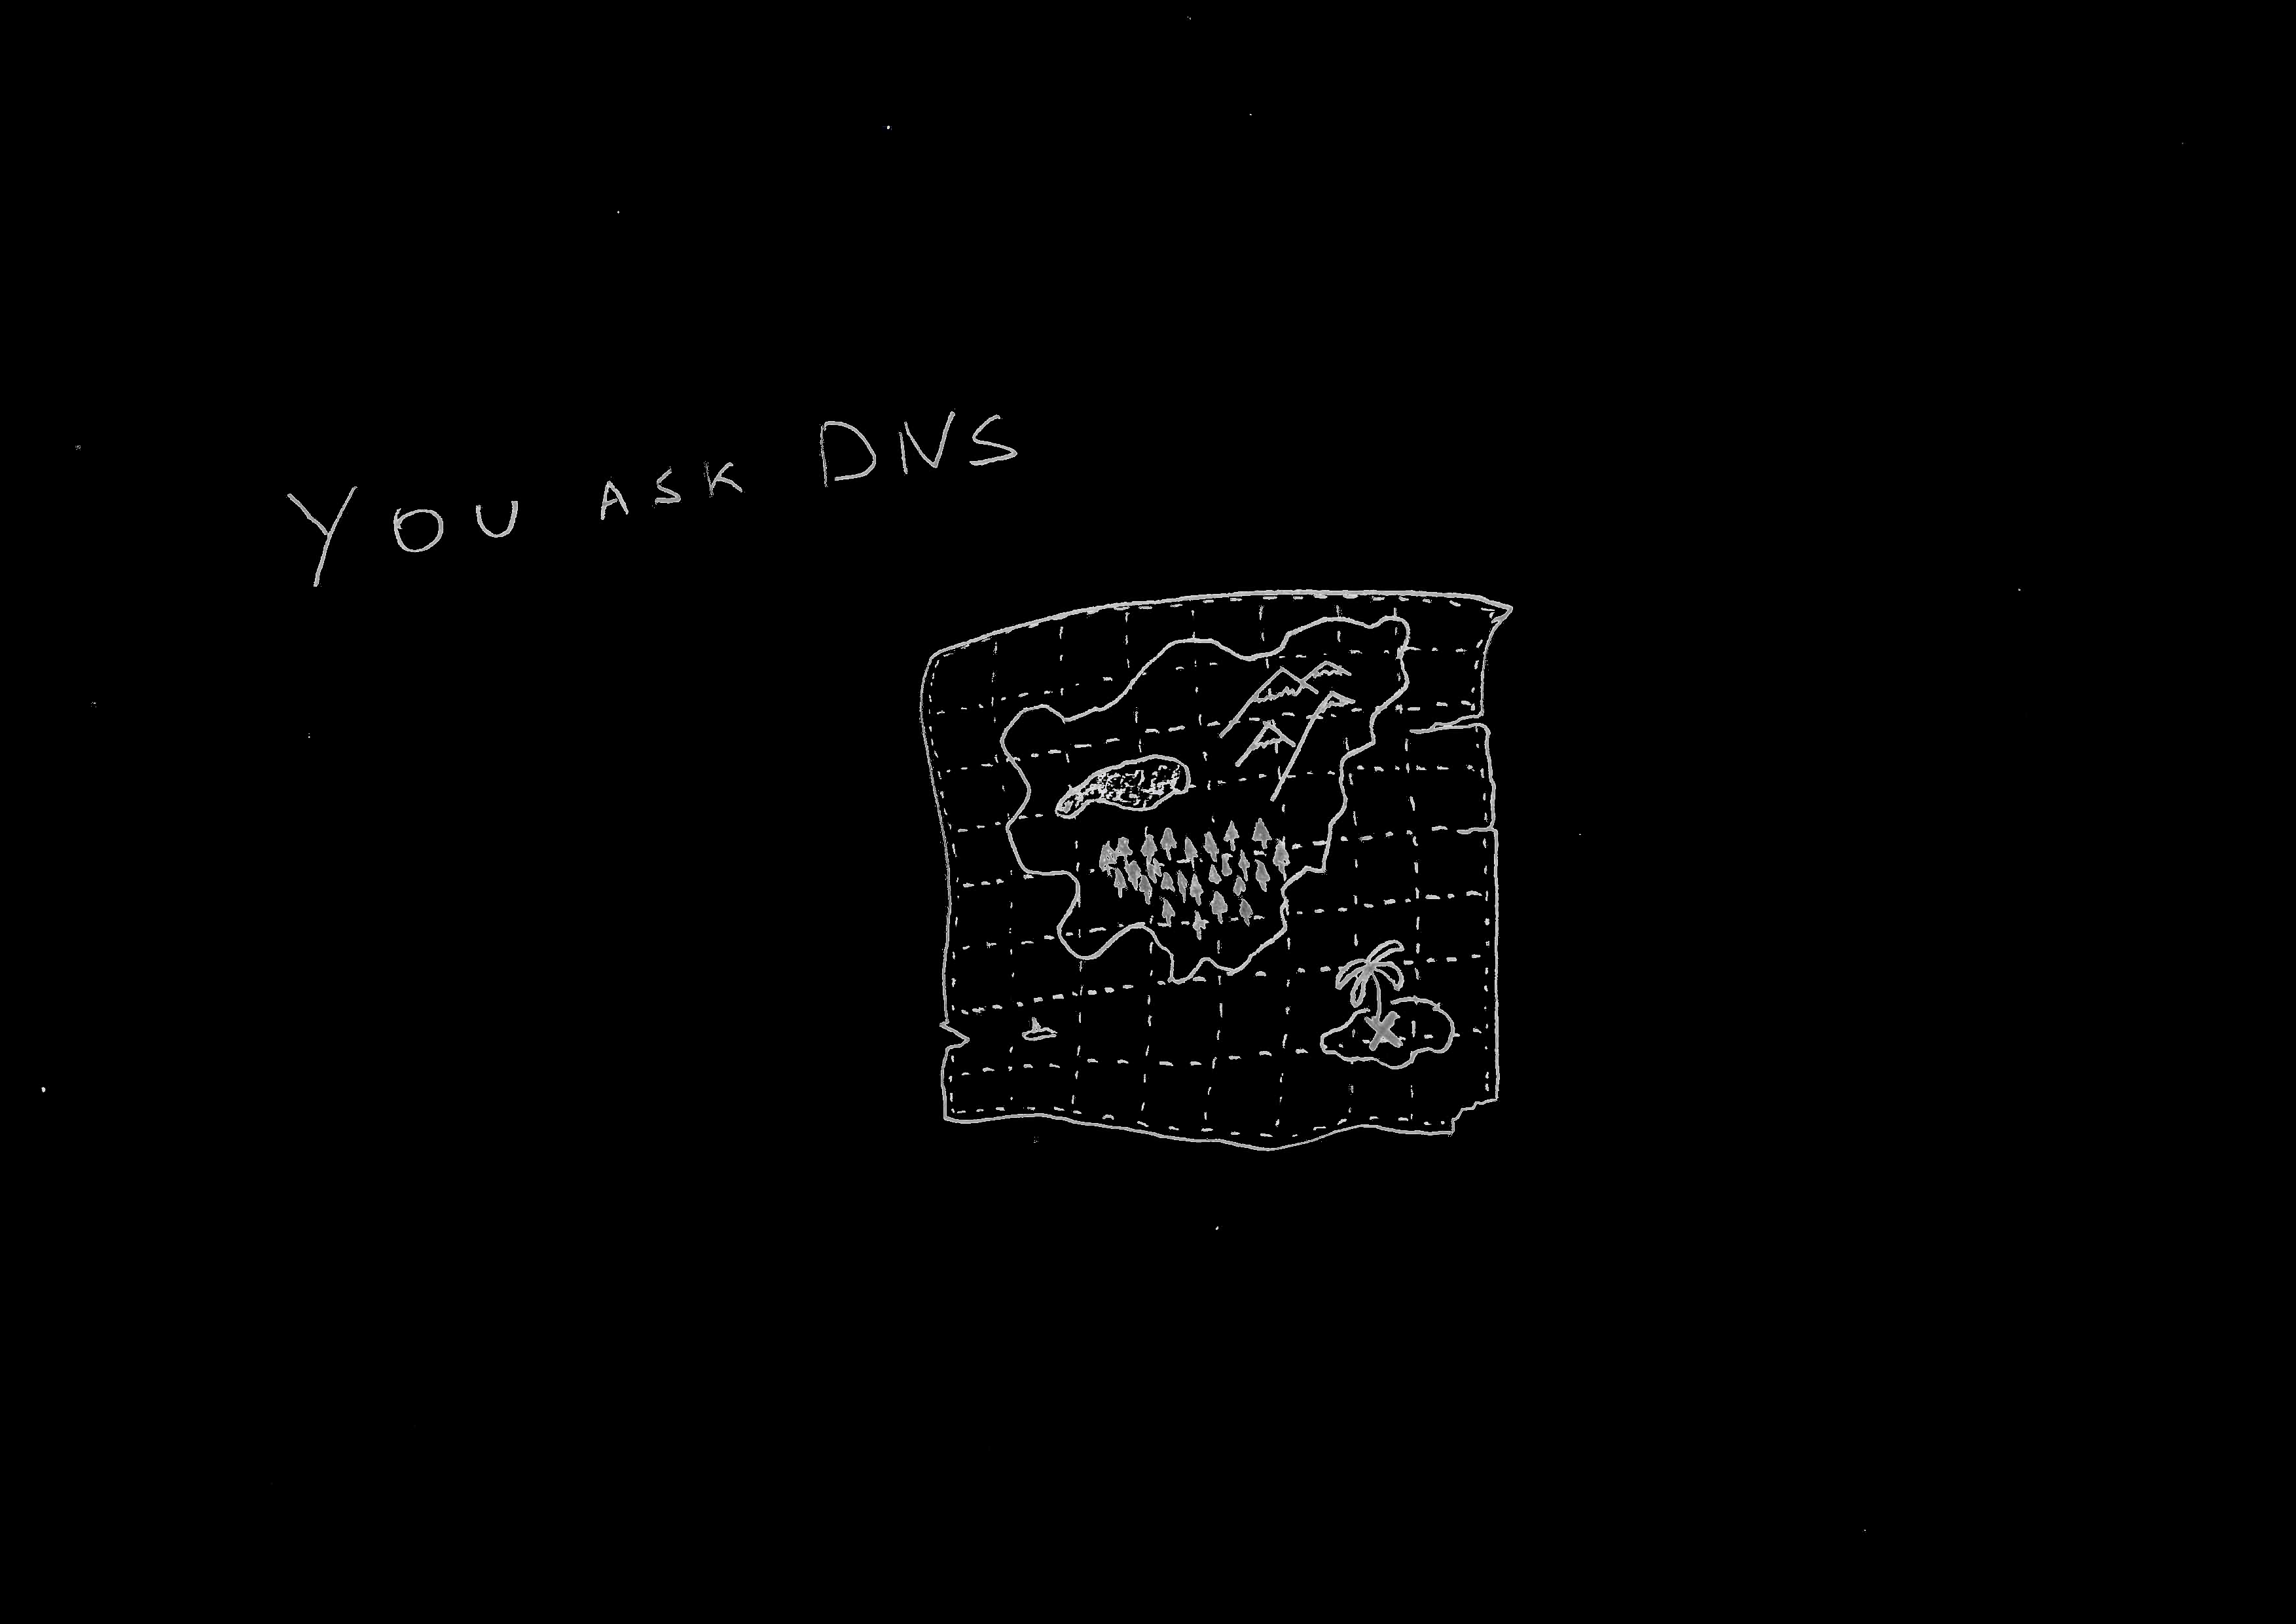 YOU ASK DNS